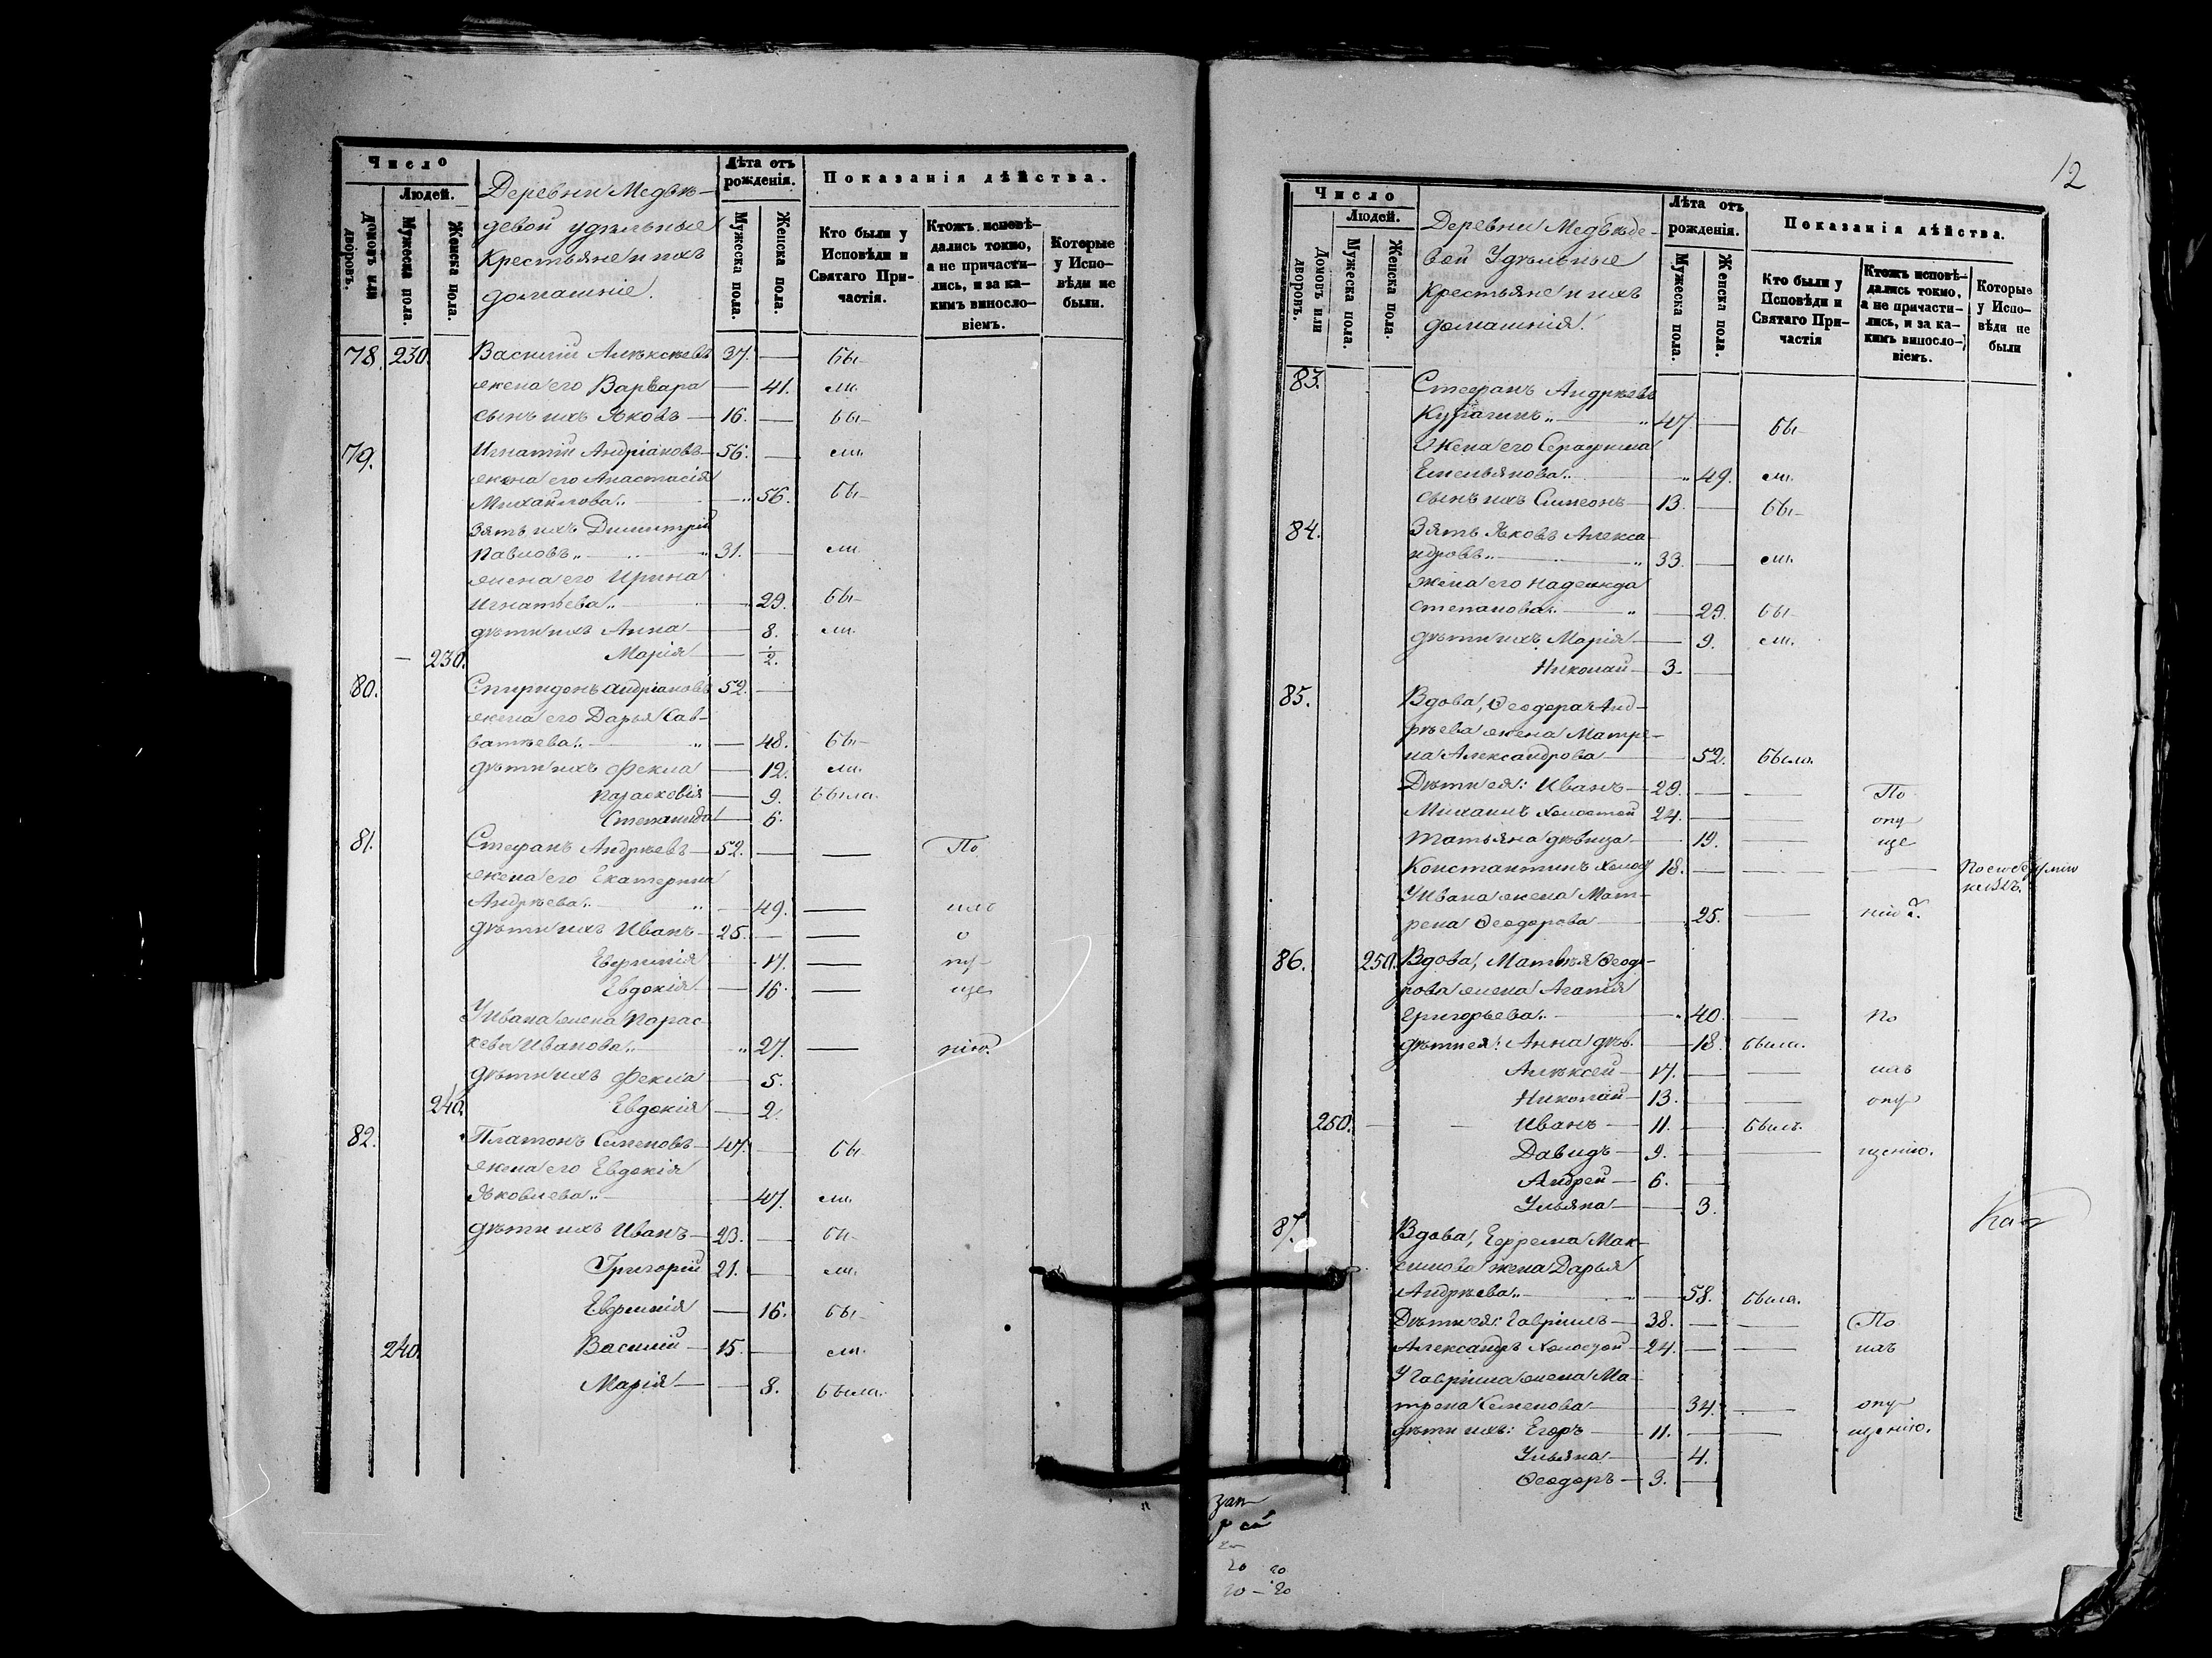 Число
Людей.
Домовъ или дворовъ.
Мужеска пола.
Женска пола.
Деревни Медвѣ-
девой удѣльные
крестьяне и ихъ
домашніе.
Лѣта отъ рожденія.
Мужеска пола.
Женска пола.
Показанія дѣйства.
Кто были у Исповѣди и Святаго При-частія.
Ктожъ исповѣ-дались токмо, а не причасти-лись, и за ка-кимъ винослo-віемъ.
Которые у Испо-вѣди не были.
78. 230. Василій Алексѣевъ 37. — бы-
жена его Варвара — 41. ли.
сынъ ихъ Яковъ — 16. — бы-
79. Игнатій Андріановъ — 56. — ли.
жена его Анастасія
Михайлова „ — „ 56. бы-
Зять ихъ Димитрій
Павловъ „ — „ 31. — ли
жена его Ирина
Игнатьева „ — 29. бы-
дѣти ихъ Анна — 8. ли.
— 230. Марія — 1/2.
80. Спиридонъ Андріановъ 52. —
жена его Дарья Сав-
ватѣева „ — „ — 48. бы-
дѣти ихъ Фекла — 12. ли.
Парасковія — 9. была.
Степанида — 6.
81. Стефанъ Андрѣевъ — 52. — — По
жена его Екатерина
Андрѣева „ „ — 49. — илъ
дѣти ихъ Иванъ — 25. — — о
Евфимія — 17. — пу-
Евдокія — 16. — ще
У Ивана жена Парас-
кева Иванова „ „ 27. — нію.
дѣти ихъ Фекла — 5.
240. Евдокія — 2.
82. Платонъ Семеновъ — 47. — бы
жена его Евдокія
Яковлева „ — 47. ли.
дѣти ихъ Иванъ — 23. — бы-
Григорій 21. — ли.
Евфимія — 16. бы-
240. Василій — 15. — ли.
Марія — — 8. была.
12
Число
Людей.
Домовъ или дворовъ.
Мужеска пола.
Женска пола.
Деревни Медвѣде-
вой Удѣльные
крестьяне и ихъ
домашнія.
Лѣта отъ рожденія.
Мужеска пола.
Женска пола.
Показанія дѣйства.
Кто были у Исповѣди и Святаго При-частія
Ктожъ исповѣ-дались токмо, а не причасти-лись, и за ка-кимъ винослo-віемъ.
Которые у Испо-вѣди не были
83. Стефанъ Андрѣевъ
„ — „ 47. — бы-
Жена его Серафима
Емельянова „ — „ 49. ли.
сынъ ихъ Симеонъ — 13. — бы-
84. Зять Яковъ Алекса-
ндровъ „ — „ 33. — ли.
жена его Надежда
Степанова „ — „ — 29. бы-
дѣти ихъ Марія — 9. ли.
Николай — 3. —
85. Вдова, Ѳеодора Анд-
рѣева жена Матре-
на Александрова — 52. была.
Дѣти ея: Иванъ — 29. — — По
Михаилъ холостой 24. — — опу
Татьяна дѣвица — 19. — ще
Константинъ холос 18. — — —
У Ивана жена Мат-
рена Ѳеодорова — 25. — нію
86. 250. Вдова, Матвѣя Ѳеодо-
рова жена Агафія
Григорьева „ — „ 40. — По
дѣти ея: Анна дѣв. — 18. была.
Алексѣй — 17. — — илъ
Николай — 13. — — опу
250. — — Иванъ — 11. — былъ.
Давидъ — 9. — — щенію.
Андрей — 6. —
Ульяна — 3.
87. Вдова, Ефрема Мак-
симова жена Дарья
Андрѣева „ — 58. была.
Дѣти ея: Гавріилъ — 38. — — По
Александръ холостой — 24. — — илъ
У Гавріила жена Ма-
трена Семенова — 34. — опу
дѣти ихъ: Егоръ — 11. — — щенію.
Ульяна — 4.
Ѳеодоръ — 3. —
20 20
20 — 20